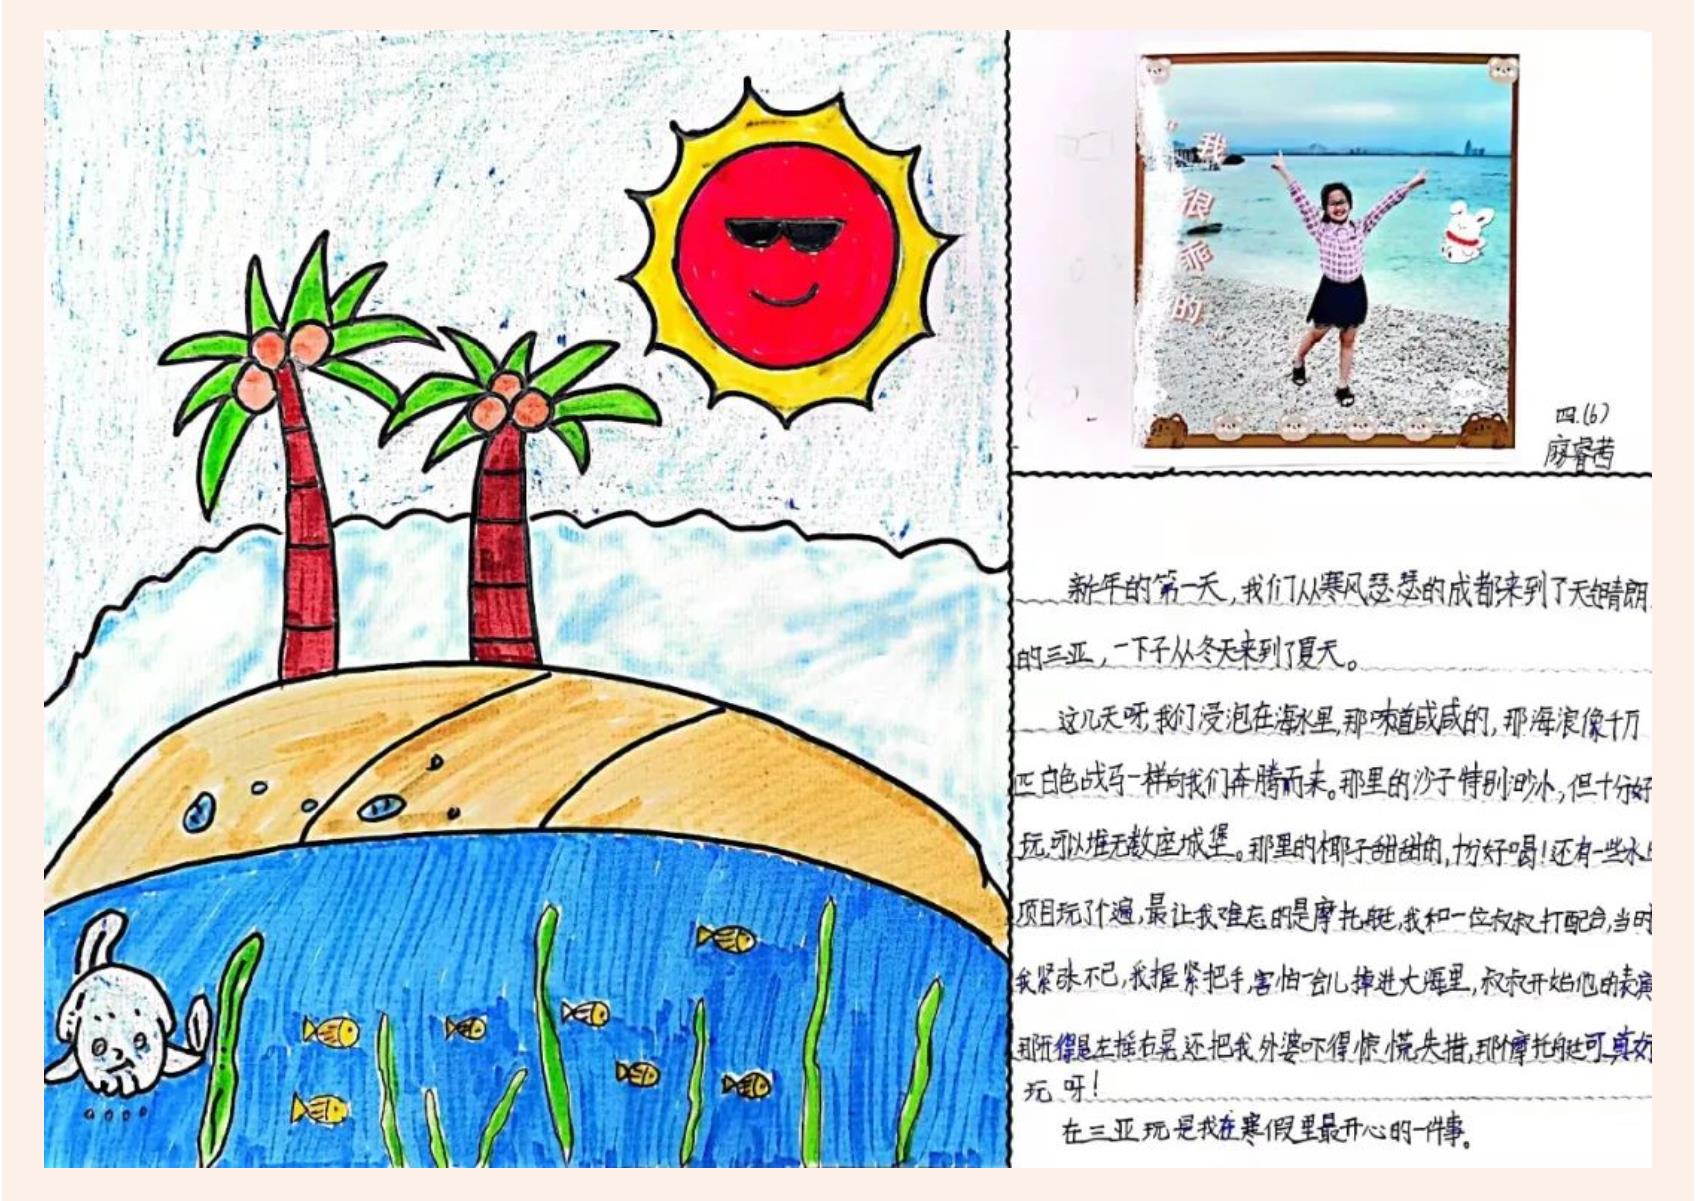 我
很
乖
的
四.(6)
廖睿茜
新年的第一天,我们从寒风瑟瑟的成都来到了天气晴朗
的三亚,一下子从冬天来到了夏天。
这几天呀,我们浸泡在海水里,那味道咸咸的,那海浪像千万
匹白色战马一样向我们奔腾而来。那里的沙子特别渺小,但十分好
玩,可以堆无数座城堡。那里的椰子甜甜的,十分好喝!还有一些水
项目玩了个遍,最让我难忘的是摩托艇,我和一位叔叔打配合,当时
我紧张不已,我握紧把手,害怕一会儿掉进大海里,叔叔开始他的表演
那玩得是左摇右晃还把我外婆吓得惊慌失措,那摩托艇可真好
玩呀!
在三亚玩是我在寒假里最开心的一件事。